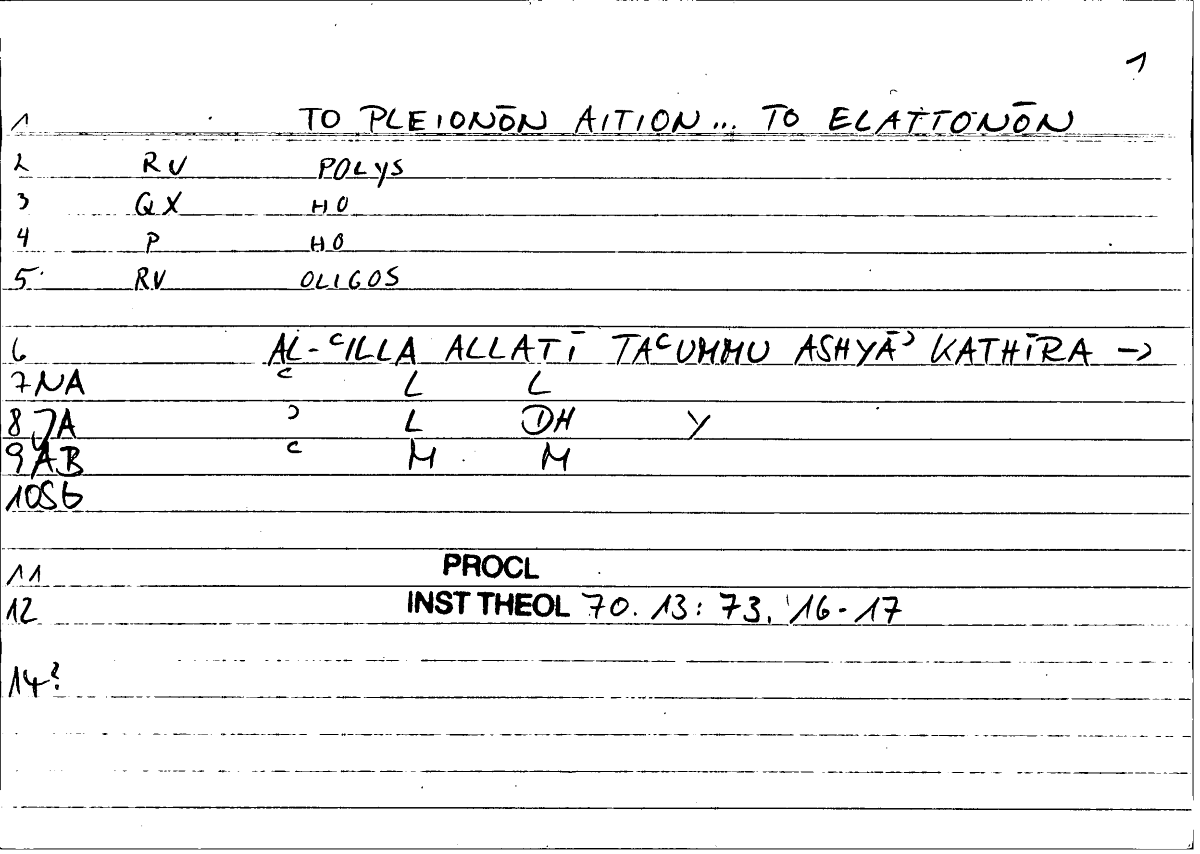 1
1 TO PLEIONŌN AITION... TO ELATTONŌN
2 RV POLYS
3 QX HO
4 P HO
5 RV OLIGOS
6 AL-ʿILLA ALLATĪ TAʿUMMU ASHYĀʾ KATHĪRA →
7 NA ʿ L L
8 JA ʾ L DH Y
9 AB ʿ M M
10 SG
11 PROCL
12 INST THEOL 70. 13: 73. 16-17
14?